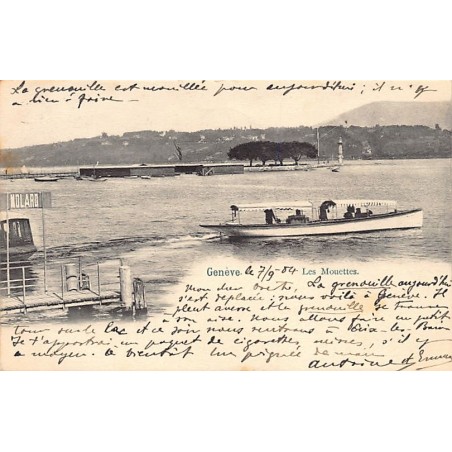 La grenouille est mouillée pour aujourd'hui ; il n'y
a rien à faire
MOLARD
Genève le 7/9 04 Les Mouettes.
mon cher La grenouille aujourd'hui
s'est déplacée ; nous voilà à Genève. Il
pleut averse et la grenouille se trouve
à son aise. Nous allons faire un petit
tour sur le lac et ce soir nous rentrons à
Je t'apporterai un paquet de cigarettes s'il y
a moyen. Le bientôt Une poignée de main
Antoine et